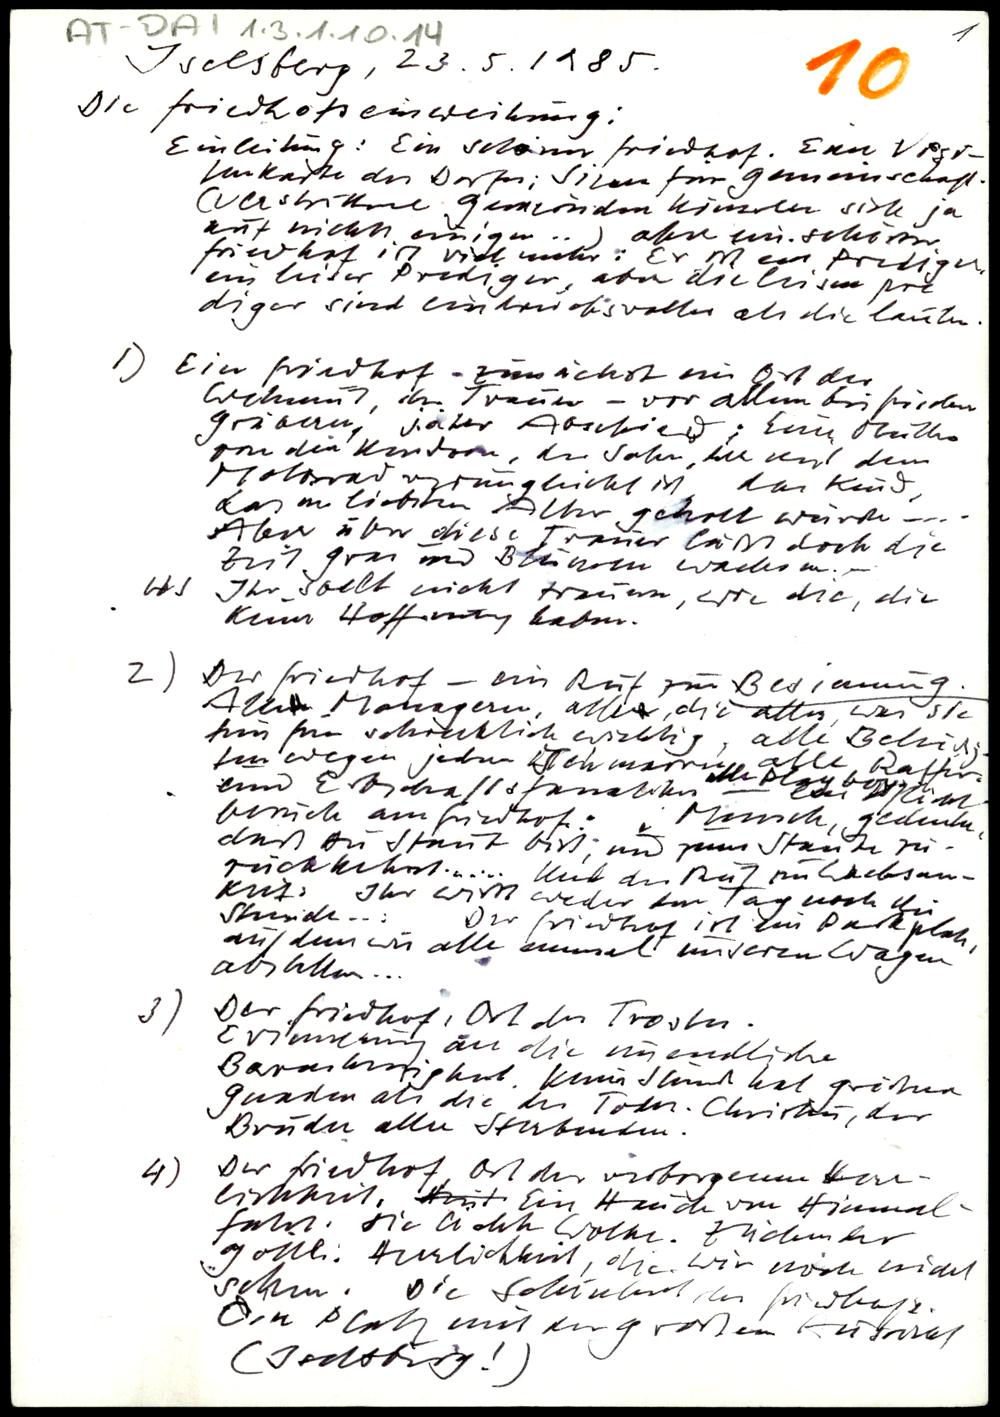 AT-DAI 1.3.1.10.14
1
Iselsberg, 23.5.1985.
10
Die Friedhofseinweihung:
Einleitung: Ein schöner Friedhof. Eine Visi-
tenkarte des Dorfes; Sinn für Gemeinschaft.
(Verstrittene Gemeinden können sich ja
auf nichts einigen...) aber ein schöner
Friedhof ist viel mehr: Er ist ein Prediger,
ein leiser Prediger, aber die leisen Pre
diger sind eindrucksvoller als die lauten.
1) Ein Friedhof - zunächst ein Ort der
Wehmut, der Trauer - vor allem bei frischen
Gräbern, jäher Abschied; Eine Mutter
von den Kindern, der Sohn, der mit dem
Motorrad verunglückt ist, das Kind,
das im liebsten Alter geholt wurde ....
Aber über diese Trauer läßt doch die
Zeit Gras und Blumen wachsen...
Ihr sollt nicht trauern, wie die, die
keine Hoffnung haben.
2) Der Friedhof - ein Ruf zur Besinnung.
Allen Managern, allen, die alles, was sie
tun für schrecklich wichtig, alle Beleidig-
ten wegen jedem, alle Raffer
und Erbschaftsfanatiker alle Playboys - ein Pflicht
besuch am Friedhof: Mensch, gedenke,
daß du Staub bist, und zum Staube zu-
rückkehrst..... Und der Ruf zu Wachsam-
keit: Ihr wißt weder den Tag noch die
Stunde...: Der Friedhof ist ein Parkplatz,
auf dem wir alle einmal unseren Wagen
abstellen...
3) Der Friedhof, Ort des Trostes.
Erinnerung an die unendliche
Barmherzigkeit. Keine Stunde hat größere
Gnaden als die des Todes. Christus, der
Bruder aller Sterbenden.
4) Der Friedhof, Ort der verborgenen Herr-
lichkeit. Ein Hauch von Himmel-
fahrt. Die lichte Wolke. Zeichen der
göttl. Herrlichkeit, die wir noch nicht
sehen. Die Schönheit des Friedhofs.
Ein Platz mit der großen Aussicht
(Iselsberg!)